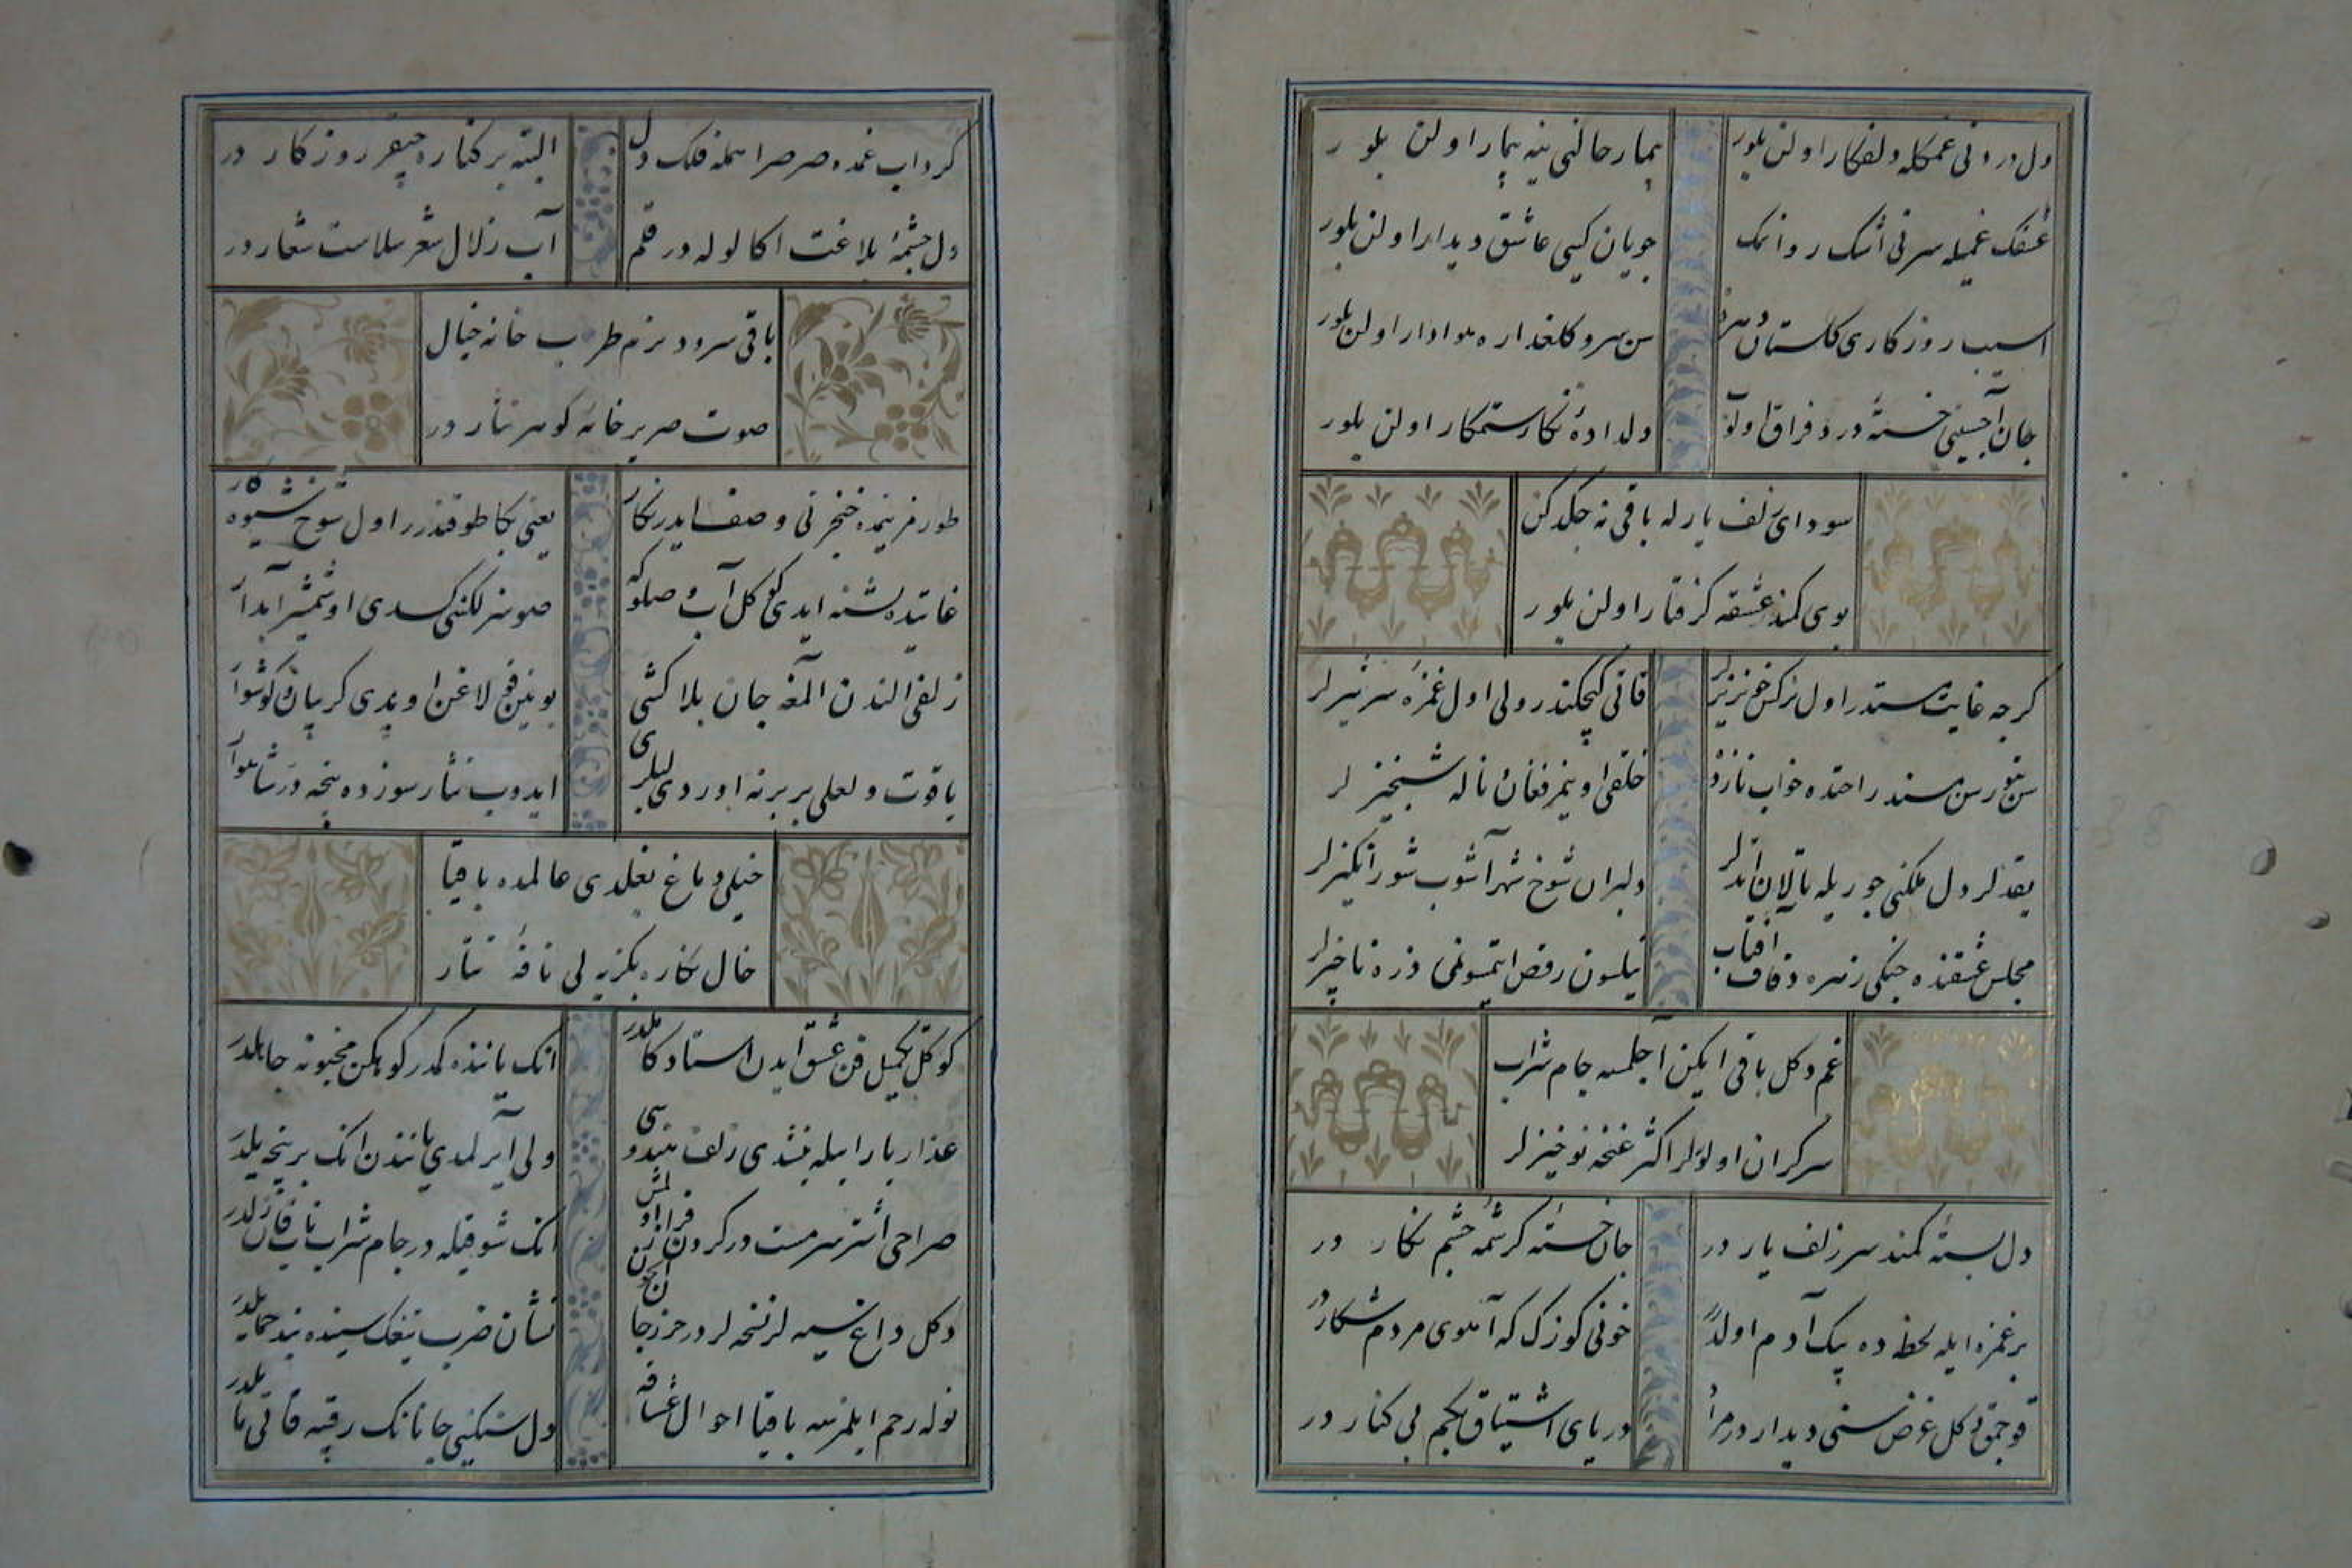 دل دردنی غمکله دلفکار اولن بلور
بیمار حالنی ینه بیمار اولن بلور
عشقک غمیله سرنی اشک روانمک
جویان کبی عاشق دیدار اولن بلور
اسیب روزکاری کلستان دهرده
سن سرو کلعذاره هوادار اولن بلور
جان آجیسینی خسته درد فراق اولن
دلداده نکار ستمکار اولن بلور
سودای زلف یار له باقی نه چکدکن
بوی کمند عشقه کرفتار اولن بلور
کرچه غایت مستدر اول نرکس خونریزلر
قاتی کسکیندر ولی اول غمزه سرتیزلر
خلقی اویتمز فغان ناله شبخیز لر
یقدلر دل ملکنی جوریله تالان ایتدلر
دلبران شوخ شهرآشوب شورانکیزلر
مجلس عشقنده چنکی زهره دفاف آفتاب
نیلسون رقص ایتمسونمی ذره ناچیزلر
غم دکل باقی ایکن آچلمسه جام شراب
سرکران اولورلر اکثر غنچه نوخیزلر
دل بسته کمند سر زلف یار در
جان خسته کرشمه چشم نکار در
بر غمزه ایله لحظه ده بیک آدم اولدرر
خونی کوزک که آهوی مردم شکار در
قوجمق دکل غرض سنی دیدار در مراد
دریای اشتیاق بنم بی کنار در
کرداب غمده صرصر اهله فلک دل
البته بر کناره چیقر روزکار در
دل چشمه بلاغت اکا لوله در قلم
آب زلال شعر سلاست شعار در
باقی سرود بزم طرب خانه خیال
صوت صریر خامه کوهر نثار در
طورمز ینمده خنجرنی وصف ایدر نکار
یعنی بکا طوقندرر اول شوخ شیوه کار
غایتده تشنه ایدی کوکل آب وصلکه
صوسزلغنی کسدی او شمشیر آبدار
زلفی الندن المغه جان بلاکشی
یاقوت و لعلی بربرنه اوردی لبلری
ایدوب نثار سوزده نیجه در شاهوار
خیلی دماغ بغلدی عالمده باقیا
خال نکاره بکزیه لی نافه تتار
کوکل تکمیل فن عشق ایدن استاد کاملدر
انک یاننده کمدر کوهکن مجنونه جاهلدر
عذار یار ایله بتشدی زلف هندوسی
ولی آیرلمدی یانندن انک بر نیجه یلدر
صراحی اشتر سرمستدر کردن فراز اولمش
انک شوقیله در جام شراب ناب قانزلدر
دکل داغ سیه لر نسخه لر در حرز جان ایچون
نشان ضرب تیغک سینه ده بند حمایلدر
نوله رحم ایلمزسه باقیا احوال عشاقه
دل سنکینی جانانک رقیبه قاتی مایلدر